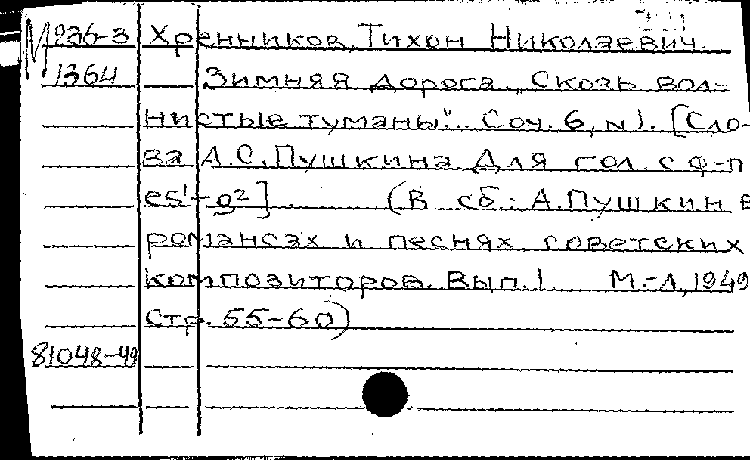 М 236-3 Хренников, Тихон Николаевич.
1364 Зимняя дорога „Скозь вол-
нистые туманы". Соч. 6, N 1. [Сло-
ва А.С. Пушкина. Для гол. с ф-п
es¹-g²] (В сб.: А. Пушкин в
романсах и песнях советских
композиторов. Вып. 1. М.-Л, 1949
Стр. 55-60)
81048-49